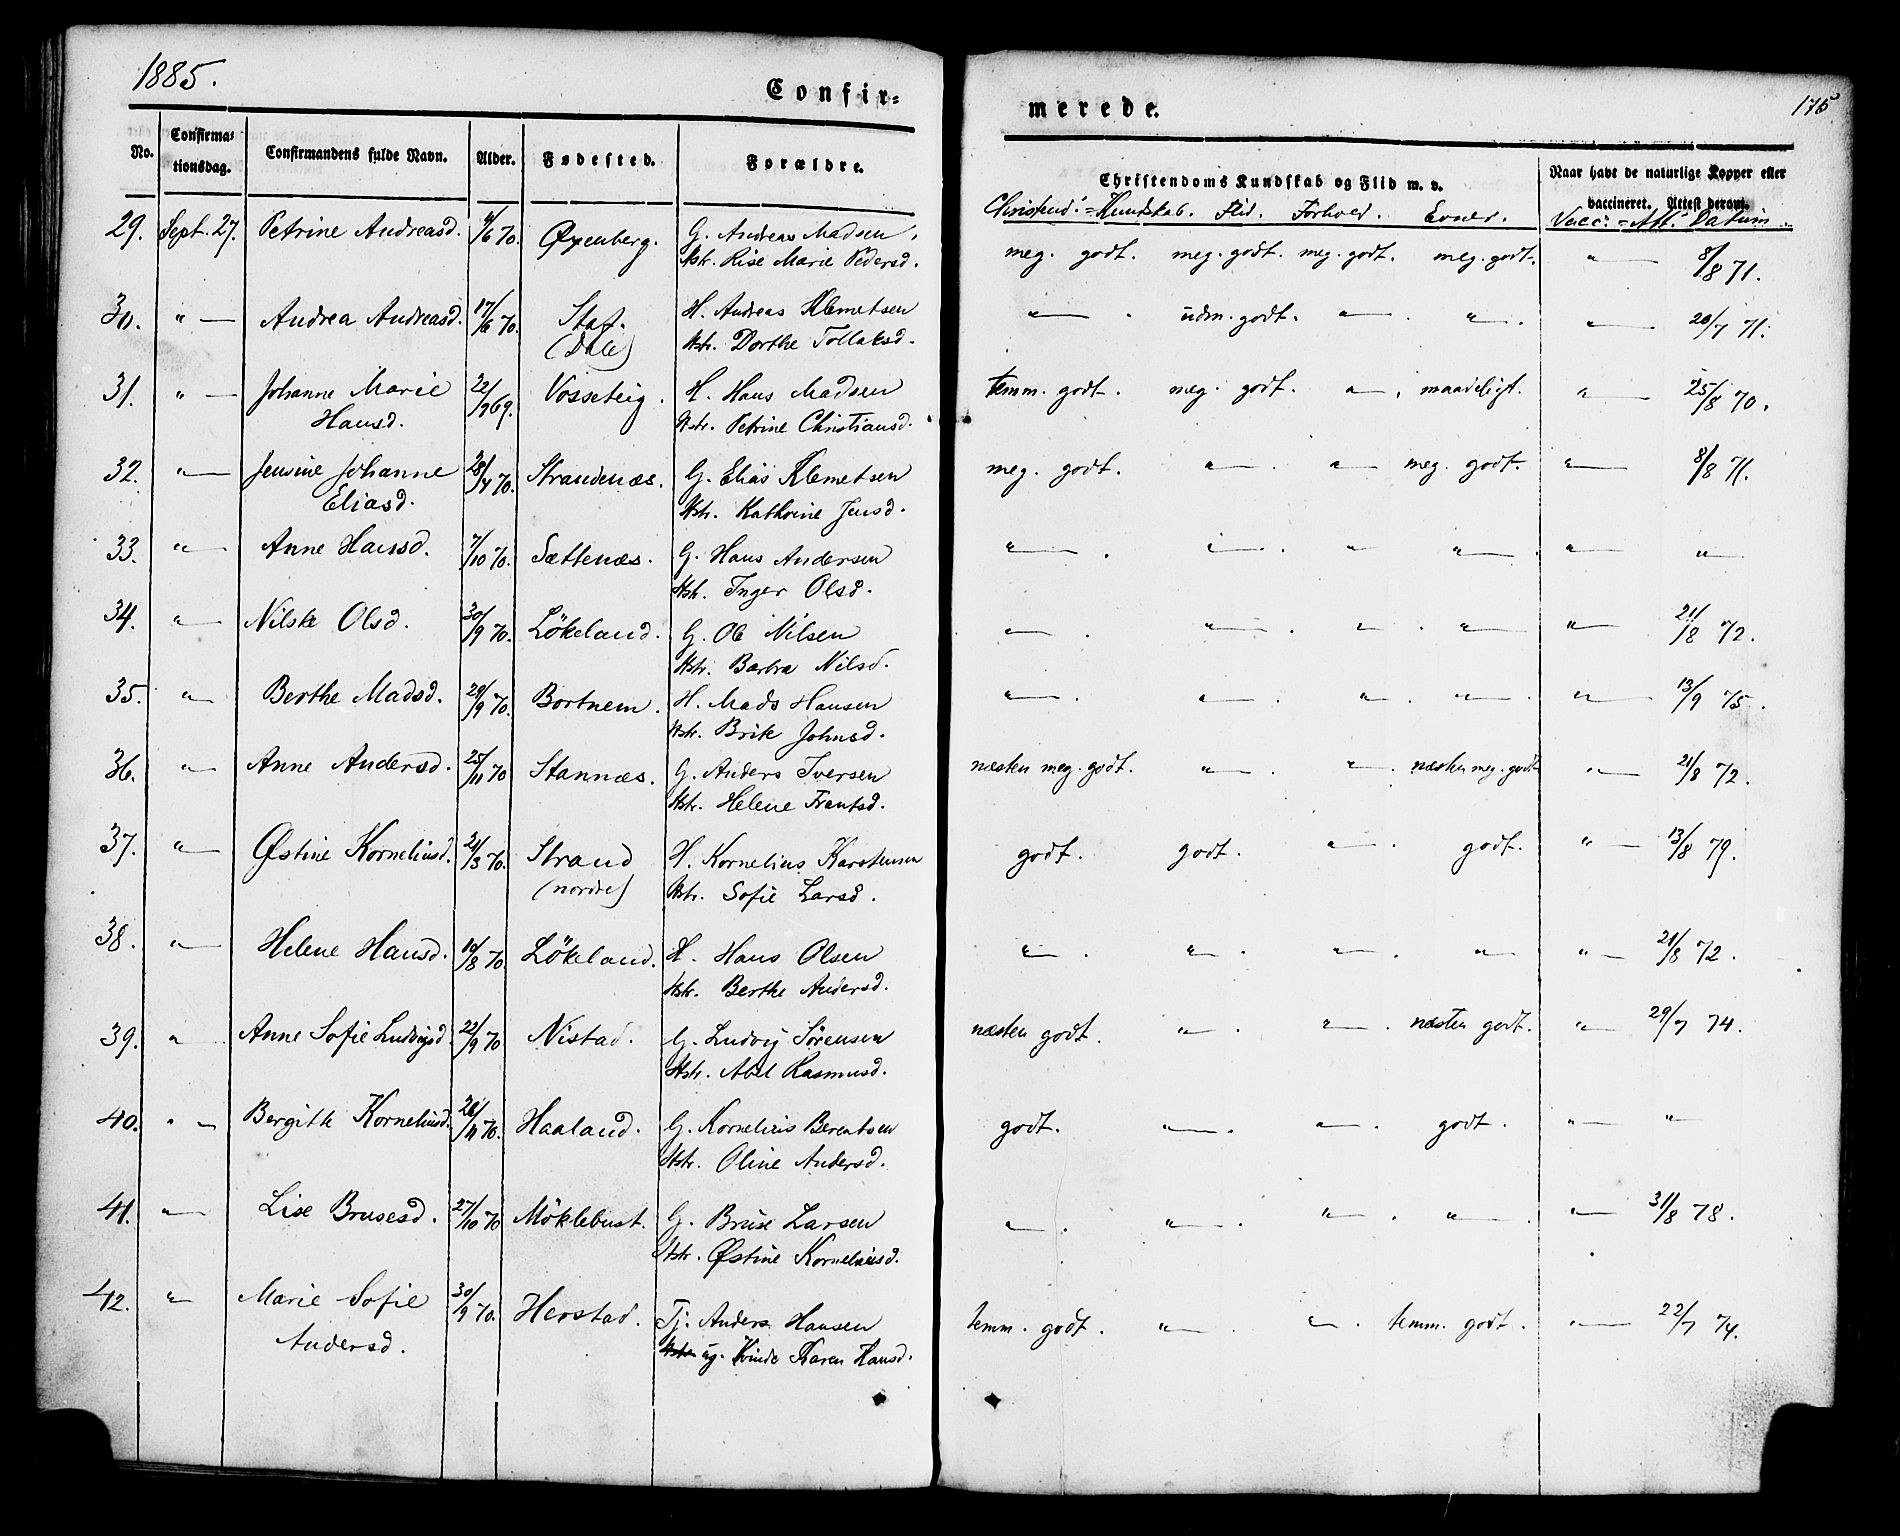 1885.
Confir=
merede.
175
No.
Confirma=
tionsdag.
Confirmandens fulde Navn.
Alder.
Fødested.
Forældre.
Christendoms Kundskab og Flid m. v.
Naar havt de naturlige Kopper eller
vaccineret. Attest derom.
Christend.=Kundskab. Flid. Forhold. Evner. Vacc.=Att. Datum.
29. Sept. 27. Petrine Andreasd. 9/6 70. Øxenberg. G. Andreas Madsen, meg. godt. meg. godt. meg. godt. meg. godt. " — 8/8 71.
Hstr. Lise Marie Pedersd.
30. " — Andrea Andreasd. 17/6 70. Staf. H. Andreas Klemetsen " — . udm. godt. " — . " — . " — 20/7 71.
(Dale) Hstr. Dorthe Tollaksd.
31. " — Johanne Marie 22/9 69. Vosseteig. H. Hans Madsen temm. godt. meg. godt. " — . maadeligt. " — 25/8 70.
Hansd. Hstr. Petrine Christiansd.
32. " — Jensine Johanne 28/4 70. Strandenæs. G. Elias Klemetsen meg. godt. " — . " — meg. godt. " — 8/8 71.
Eliasd. Hstr. Kathrine Jensd.
33. " — Anne Hansd. 7/10 70. Sættenæs. G. Hans Andersen " — . " — . " — " — . " — " —
Hstr. Inger Olsd.
34. " — Nilske Olsd. 30/9 70. Lökeland. G. Ole Nilsen " — . " — . " — . " — " — 21/8 72.
Hstr. Barbra Nilsd.
35. " — Berthe Madsd. 29/9 70. Bortnem. H. Mads Hansen " — . " — . " — . " — . " — 13/9 75.
Hstr. Brite Johnsd.
36. " — Anne Andersd. 25/11 70 Stannæs. G. Anders Iversen næsten meg. godt. " — . " — . næsten meg. godt " — 21/8 72.
Hstr. Helene Frantsd.
37. " — Østine Korneliusd. 21/3 70. Strand H. Kornelius Karstensen godt. godt. " — . godt. " — 13/8 79.
(nordre) Hstr. Sofie Larsd.
38. " — Helene Hansd. 10/8 70. Lökeland. H. Hans Olsen " — . " — . " — . " — " — 21/8 72.
Hstr. Berthe Andersd.
39. " Anne Sofie Ludvigsd 22/9 70 Nistad. G. Ludvig Sörensen næsten godt. " — . " — . næsten godt. " — 29/7 74.
Hstr. Abel Rasmusd.
40. " — Bergithe Korneliusd. 26/11 70. Haaland. G. Kornelius Berentsen godt. " — . " — . godt. " — " —
Hstr. Oline Andersd.
41. " — Lise Brusesd. 27/10 70 Möklebust. G. Bruse Larsen " — . " — . " — . " — . " — 31/8 78.
Hstr. Østine Korneliusd.
42. " — Marie Sofie 30/9 70. Herstad. Tj. Anders Hansen temm. godt. " — . " — . temm. godt. " — 22/7 74.
Andersd. ug. Kvinde Karen Hansd.